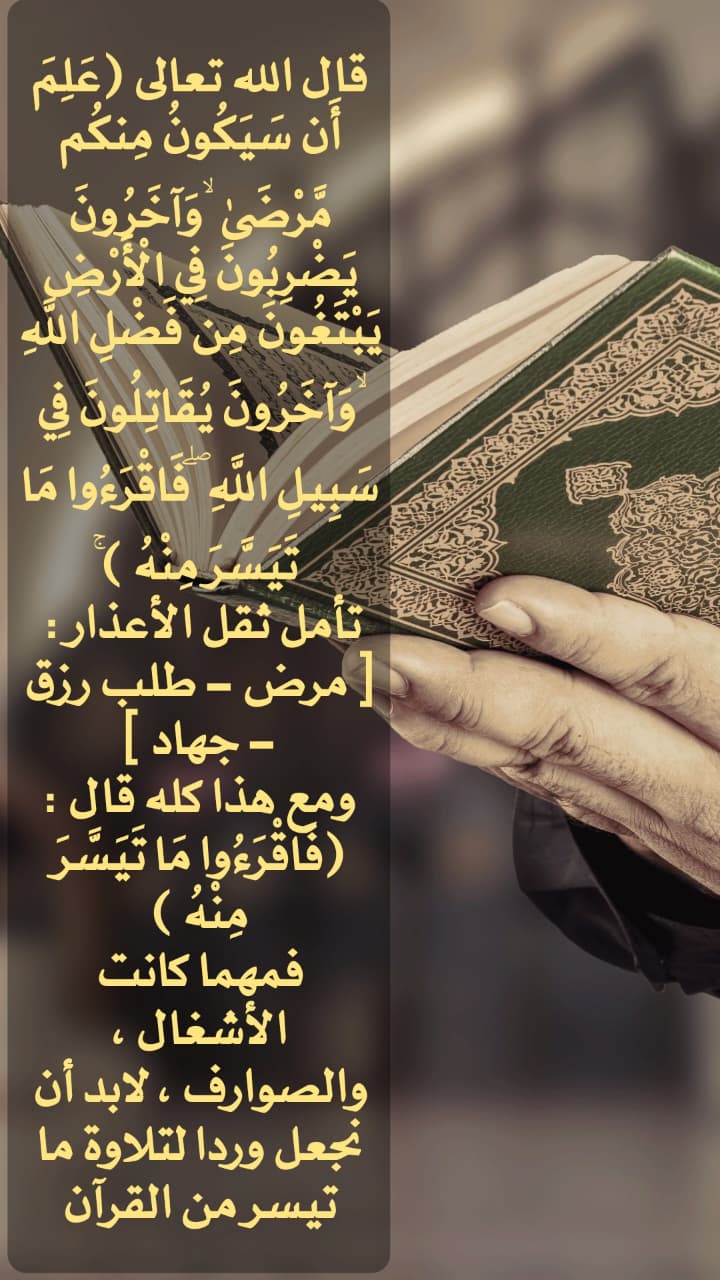 قال الله تعالى (عَلِمَ
أَن سَيَكُونُ مِنكُم
مَّرْضَىٰ ۙ وَآخَرُونَ
يَضْرِبُونَ فِي الْأَرْضِ
يَبْتَغُونَ مِن فَضْلِ اللَّهِ
ۙ وَآخَرُونَ يُقَاتِلُونَ فِي
سَبِيلِ اللَّهِ ۖ فَاقْرَءُوا مَا
تَيَسَّرَ مِنْهُ ) ۚ
تأمل ثقل الأعذار :
[ مرض - طلب رزق
- جهاد ]
ومع هذا كله قال :
(فَاقْرَءُوا مَا تَيَسَّرَ
مِنْهُ )
فمهما كانت
الأشغال ،
والصوارف ، لابد أن
نجعل وردا لتلاوة ما
تيسر من القرآن